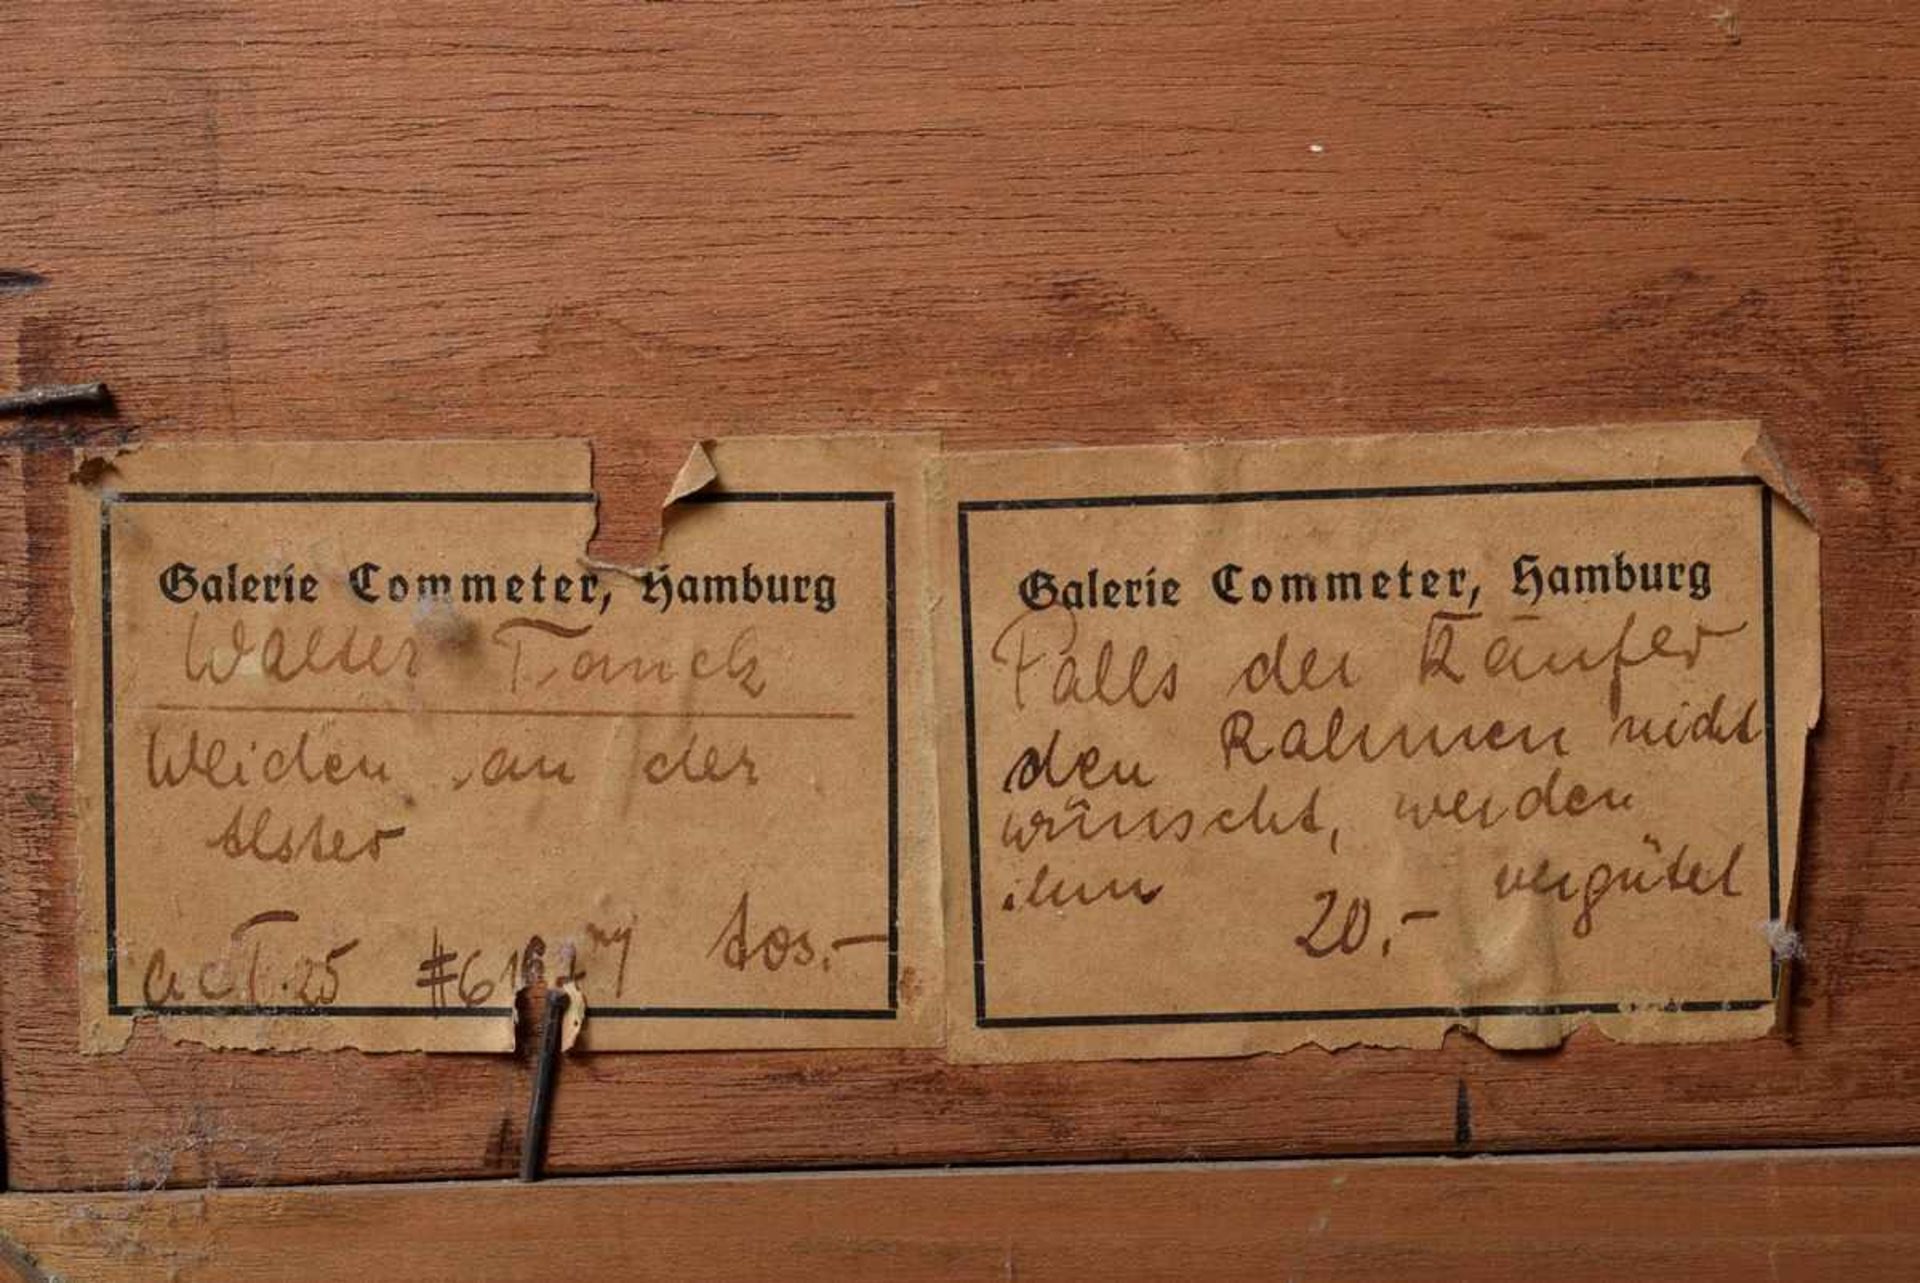 Galerie Commeter, Hamburg
Walter Tanck
Weiden an der
Alster
Galerie Commeter, Hamburg
Falls der Käufer
den Rahmen nicht
wünscht, werden
ihm 20.- vergütet